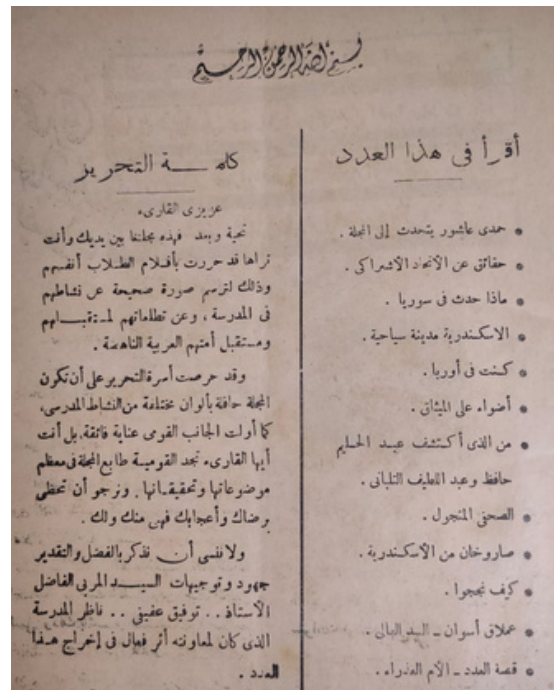 بسم الله الرحمن الرحيم
أقرأ في هذا العدد
حمدى عاشور يتحدث إلى المجلة .
حقائق عن الاتحاد الاشتراكى .
ماذا حدث فى سوريا .
الاسكندرية مدينة سياحية .
كنت فى أوربا .
أضواء على الميثاق .
من الذى أكتشف عبد الحليم
حافظ وعبد اللطيف التلبانى .
الصحفى المتجول .
صاروخان من الاسكندرية .
كيف نجحوا .
عملاق أسوان ـ السد العالى .
قصة العدد ـ الأم العذراء .
كلمة التحرير
عزيزى القارىء
تحية وبعد فهذه مجلتنا بين يديك وأنت
تراها قد حررت بأقلام الطلاب أنفسهم
وذلك لترسم صورة صحيحة عن نشاطهم
فى المدرسة ، وعن تطلعاتهم لمستقبلهم
ومستقبل أمتهم العربية الناهضة .
وقد حرصت أسرة التحرير على أن تكون
المجلة حافلة بألوان مختلفة من النشاط المدرسى،
كما أولت الجانب القومى عناية فائقة، بل أنت
أيها القارىء تجد القومية طابع المجلة فى معظم
موضوعاتها وتحقيقاتها . ونرجو أن تحظى
برضاك وأعجابك فهى منك ولك .
ولا ننسى أن نذكر بالفضل والتقدير
جهود وتوجيهات السيد المربى الفاضل
الأستاذ . . توفيق عفيفى . . ناظر المدرسة
الذى كان لمعاونته أثر فعال فى إخراج هذا
العدد .